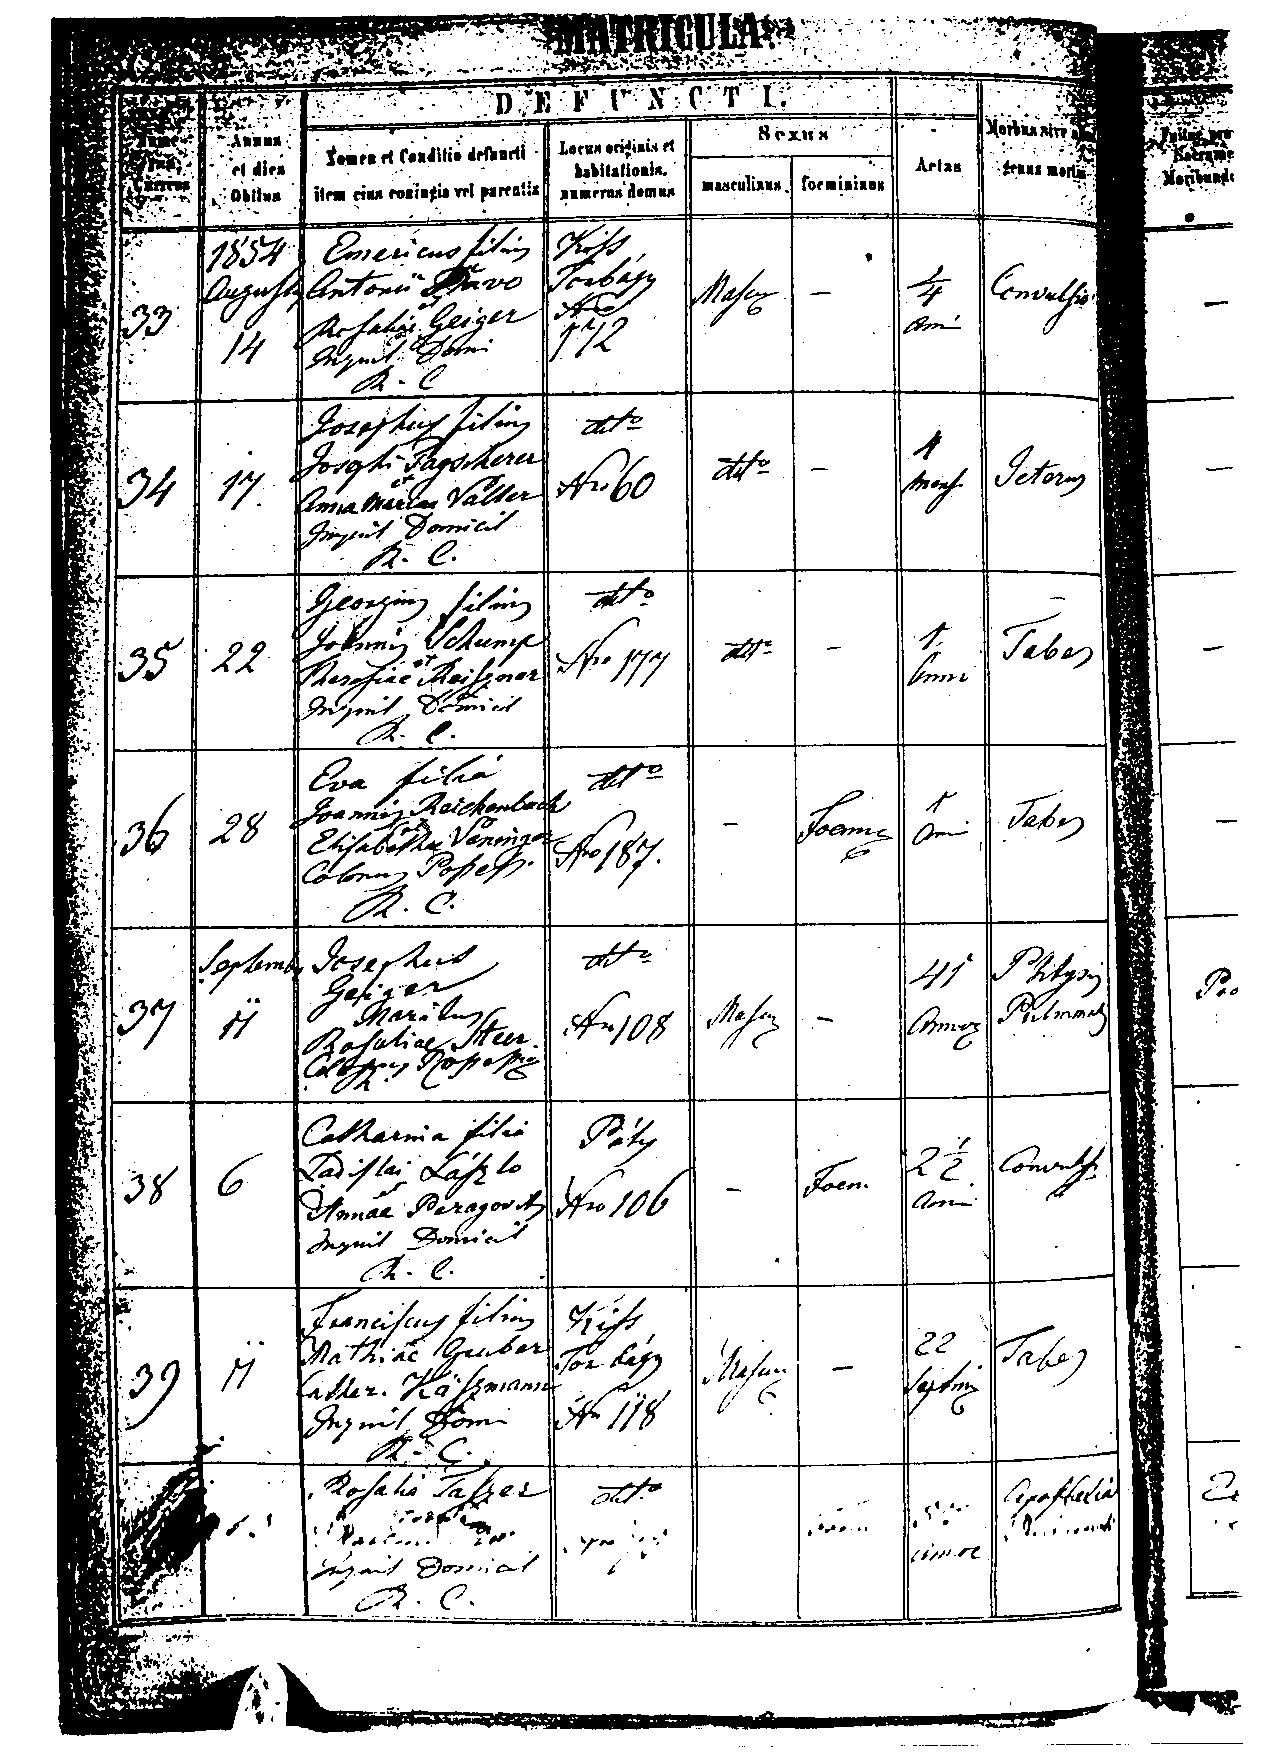 MATRICULA.
DEFUNCTI.
Annus et dies Obitus
Nomen et Conditio defuncti item eius coniugis vel parentis
Locus originis et habitationis, numerus domus
Sexus
masculinus.
foemininus
Aetas
Morbus sive
genus mortis
33
1854
Augusty
14
Emericus filius
Antonii
et
Rosaliae Geiger
Inquil Domi
R. C.
Kiss
Torbágy
Nro
172
Mascu
-
1/4
Ani
Convulsio
-
34
17.
Josephus filius
Josephi Pagscherer
et
Anna Mariae Valter
Inquil Domicil
R. C.
detto
Nro 60
detto
-
1
mens.
Icterus
-
35
22
Georgius filius
Joannis Schump
et
Theresiae Reiszner
Inquil Domicil
R. C.
detto
Nro 177
detto
-
1
Anni
Tabes
-
36
28
Eva filia
Joannis Reichenbach
Elisabethae Veninger
Colonus Posess.
R. C.
detto
Nro 187.
-
Foemi
1
Ani
Tabes
-
37
Septemb
11
Josephus
Geiger
Maritus
Rosaliae Steer.
R.
detto
Nro 108
Mascu
-
41
Annor
Phtysis
Pulmonal
38
6
Catharina filia
Ladislai László
et
Annae Peragovits
Inquil Domicil
R. C.
Páty
Nro 106
-
Foem.
2 1/2
Ani
Convuls.
39
11
Franciscus filius
Mathiae Gruber
Cather. Käszmann
Inquil Domi
R. C.
Kiss
Torbágy
Nro 118
Mascu
-
22
Septim
Tabes
Rosalia Taszer
Inquil Domicil
R. C.
detto